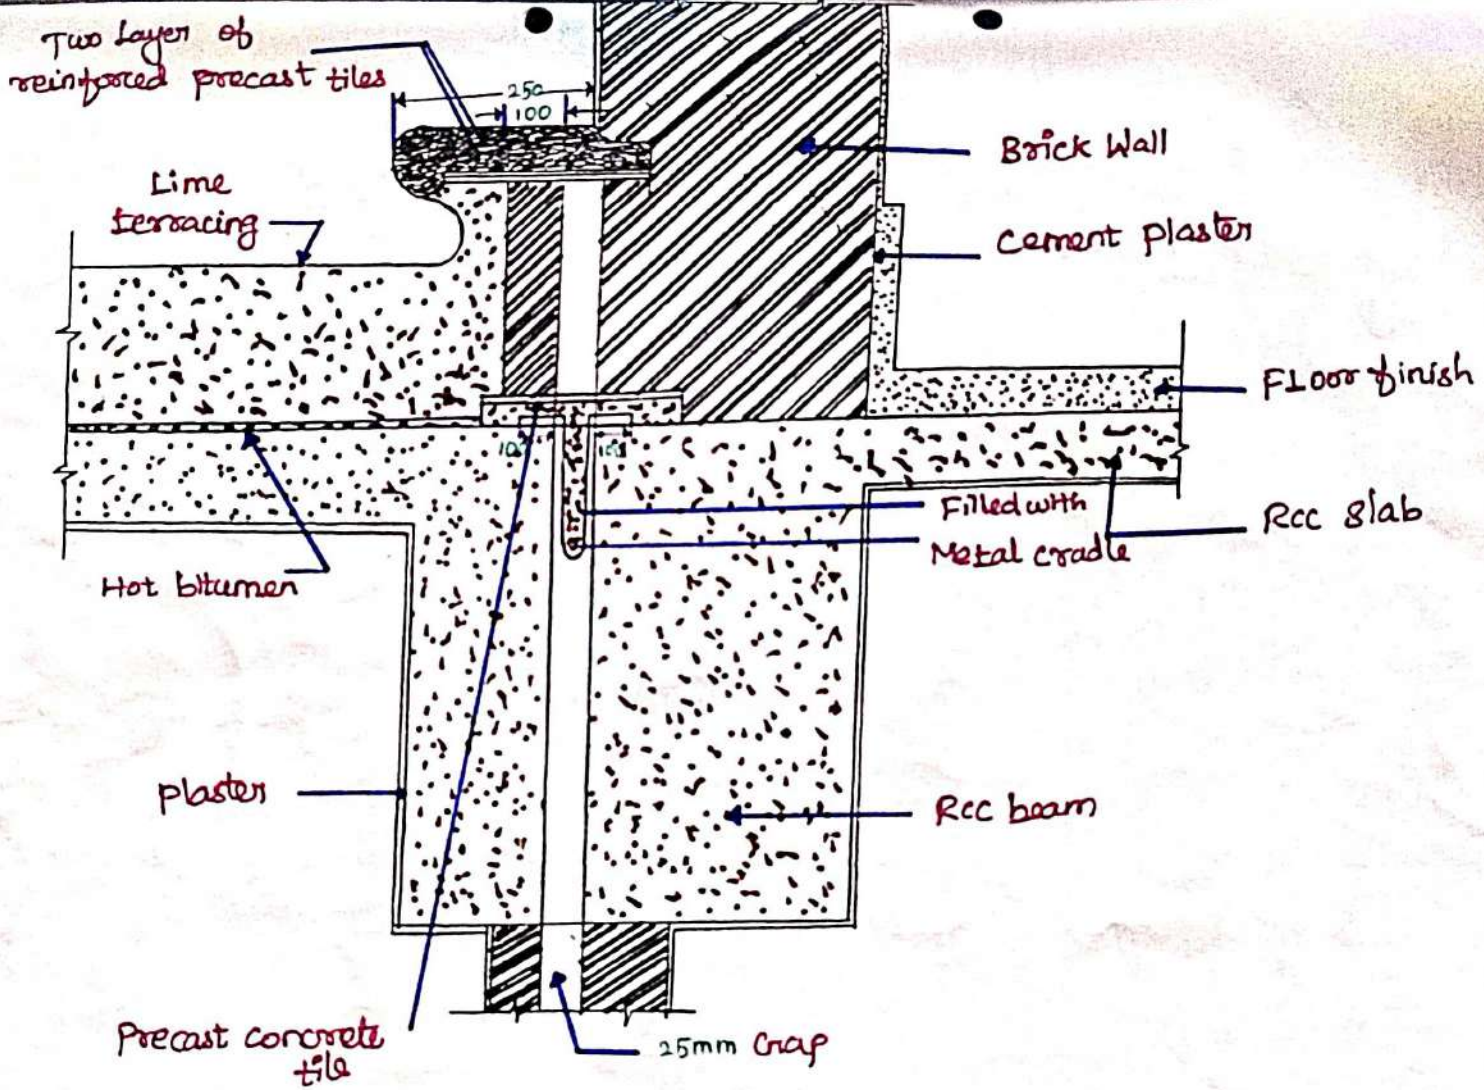 Two Layer of
reinforced precast tiles
250
100
Brick Wall
Lime
terracing
Cement plaster
Floor finish
100
100
Filled with
Rcc slab
Metal cradle
Hot bitumen
plaster
Rcc beam
Precast concrete
tile
25mm Gap